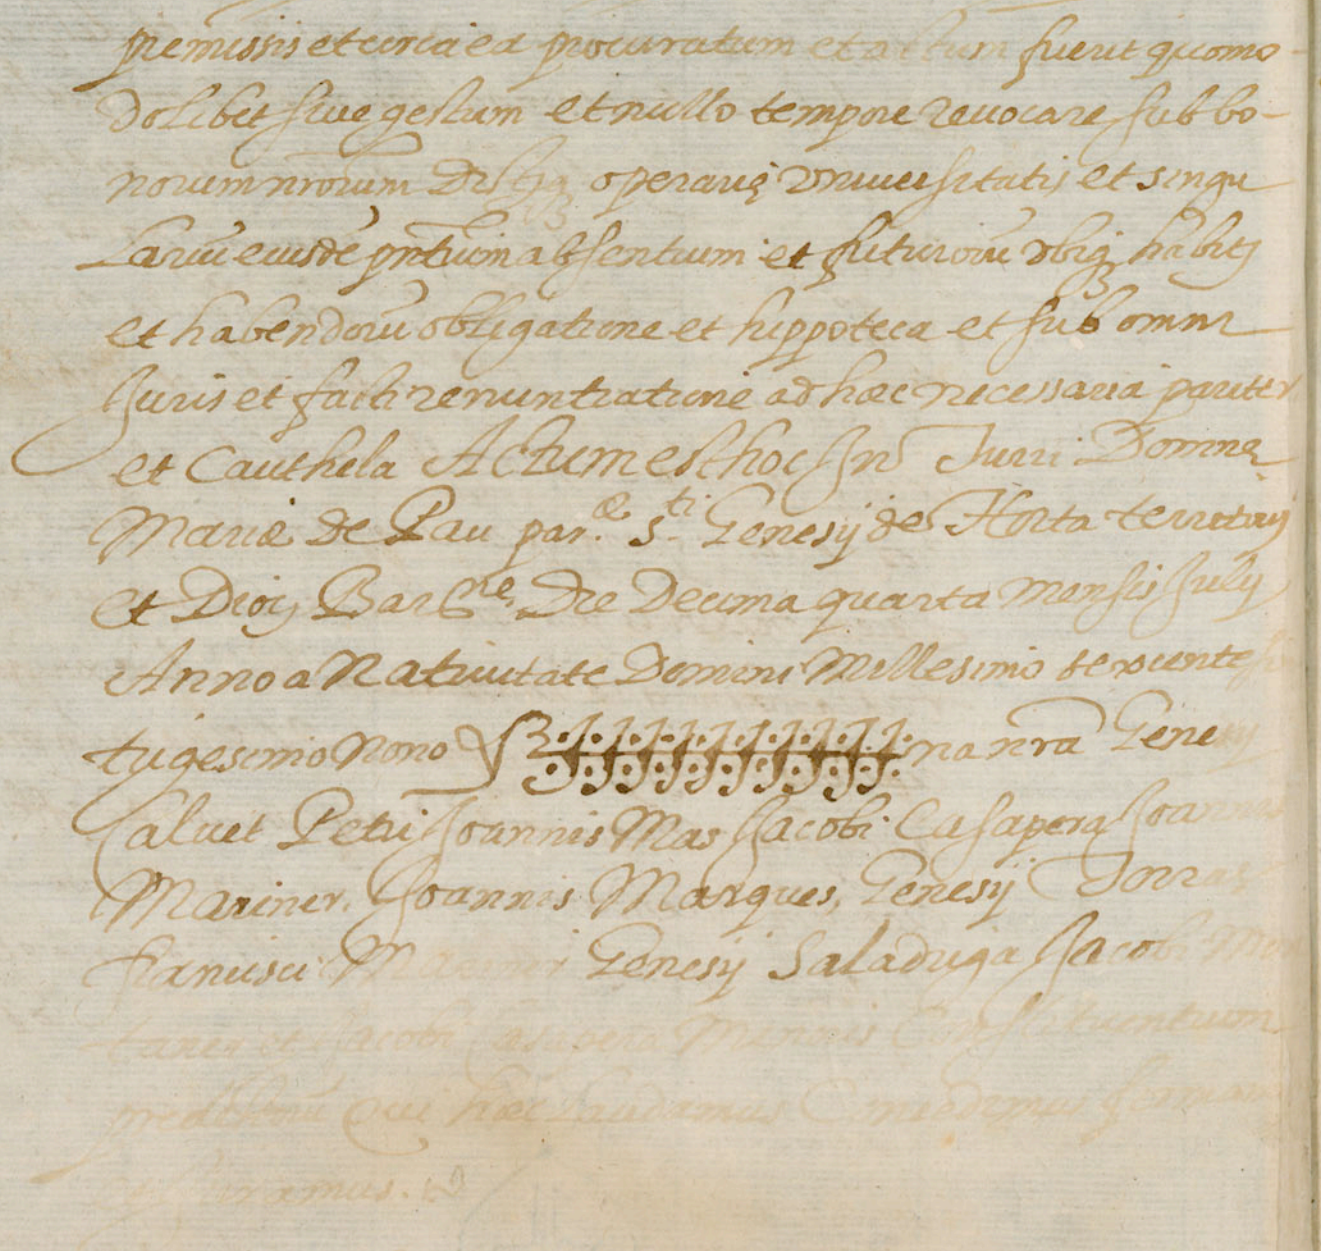 premissis et circa ea procuratum et actum fuerit quomo-
dolibet sive gestum et nullo tempore revocare sub bo-
norum nrorum Dictq operariq Universitatis et singu
Lariu eiusde pntium absentium et futuroru ubiq habitq
et habendoru obligatione et hippoteca et sub omni
Juris et facti renuntiatione ad hæc necessaria pariter
et Cauthela Actum est hoc In Turri Dominæ
Mariæ de Pau par.æ S.ti Genesij de Horta territorij
et Diocq Barc.ne, Die Decima quarta Mensis Julij
Anno a Nativitate Domini Millesimo sexcente
trigesimo Nono na nra Genesij
Calvet Petri Joannis Mas Jacobi Casapera Joannis
Mariner, Joannis Marques, Genesij Torras
francisci Mariner Genesij Saladriga Jacobi
et Jacobi Casapera Minoris Constituentium
predictoru Qui hæc Laudamus Concedimus firmamus